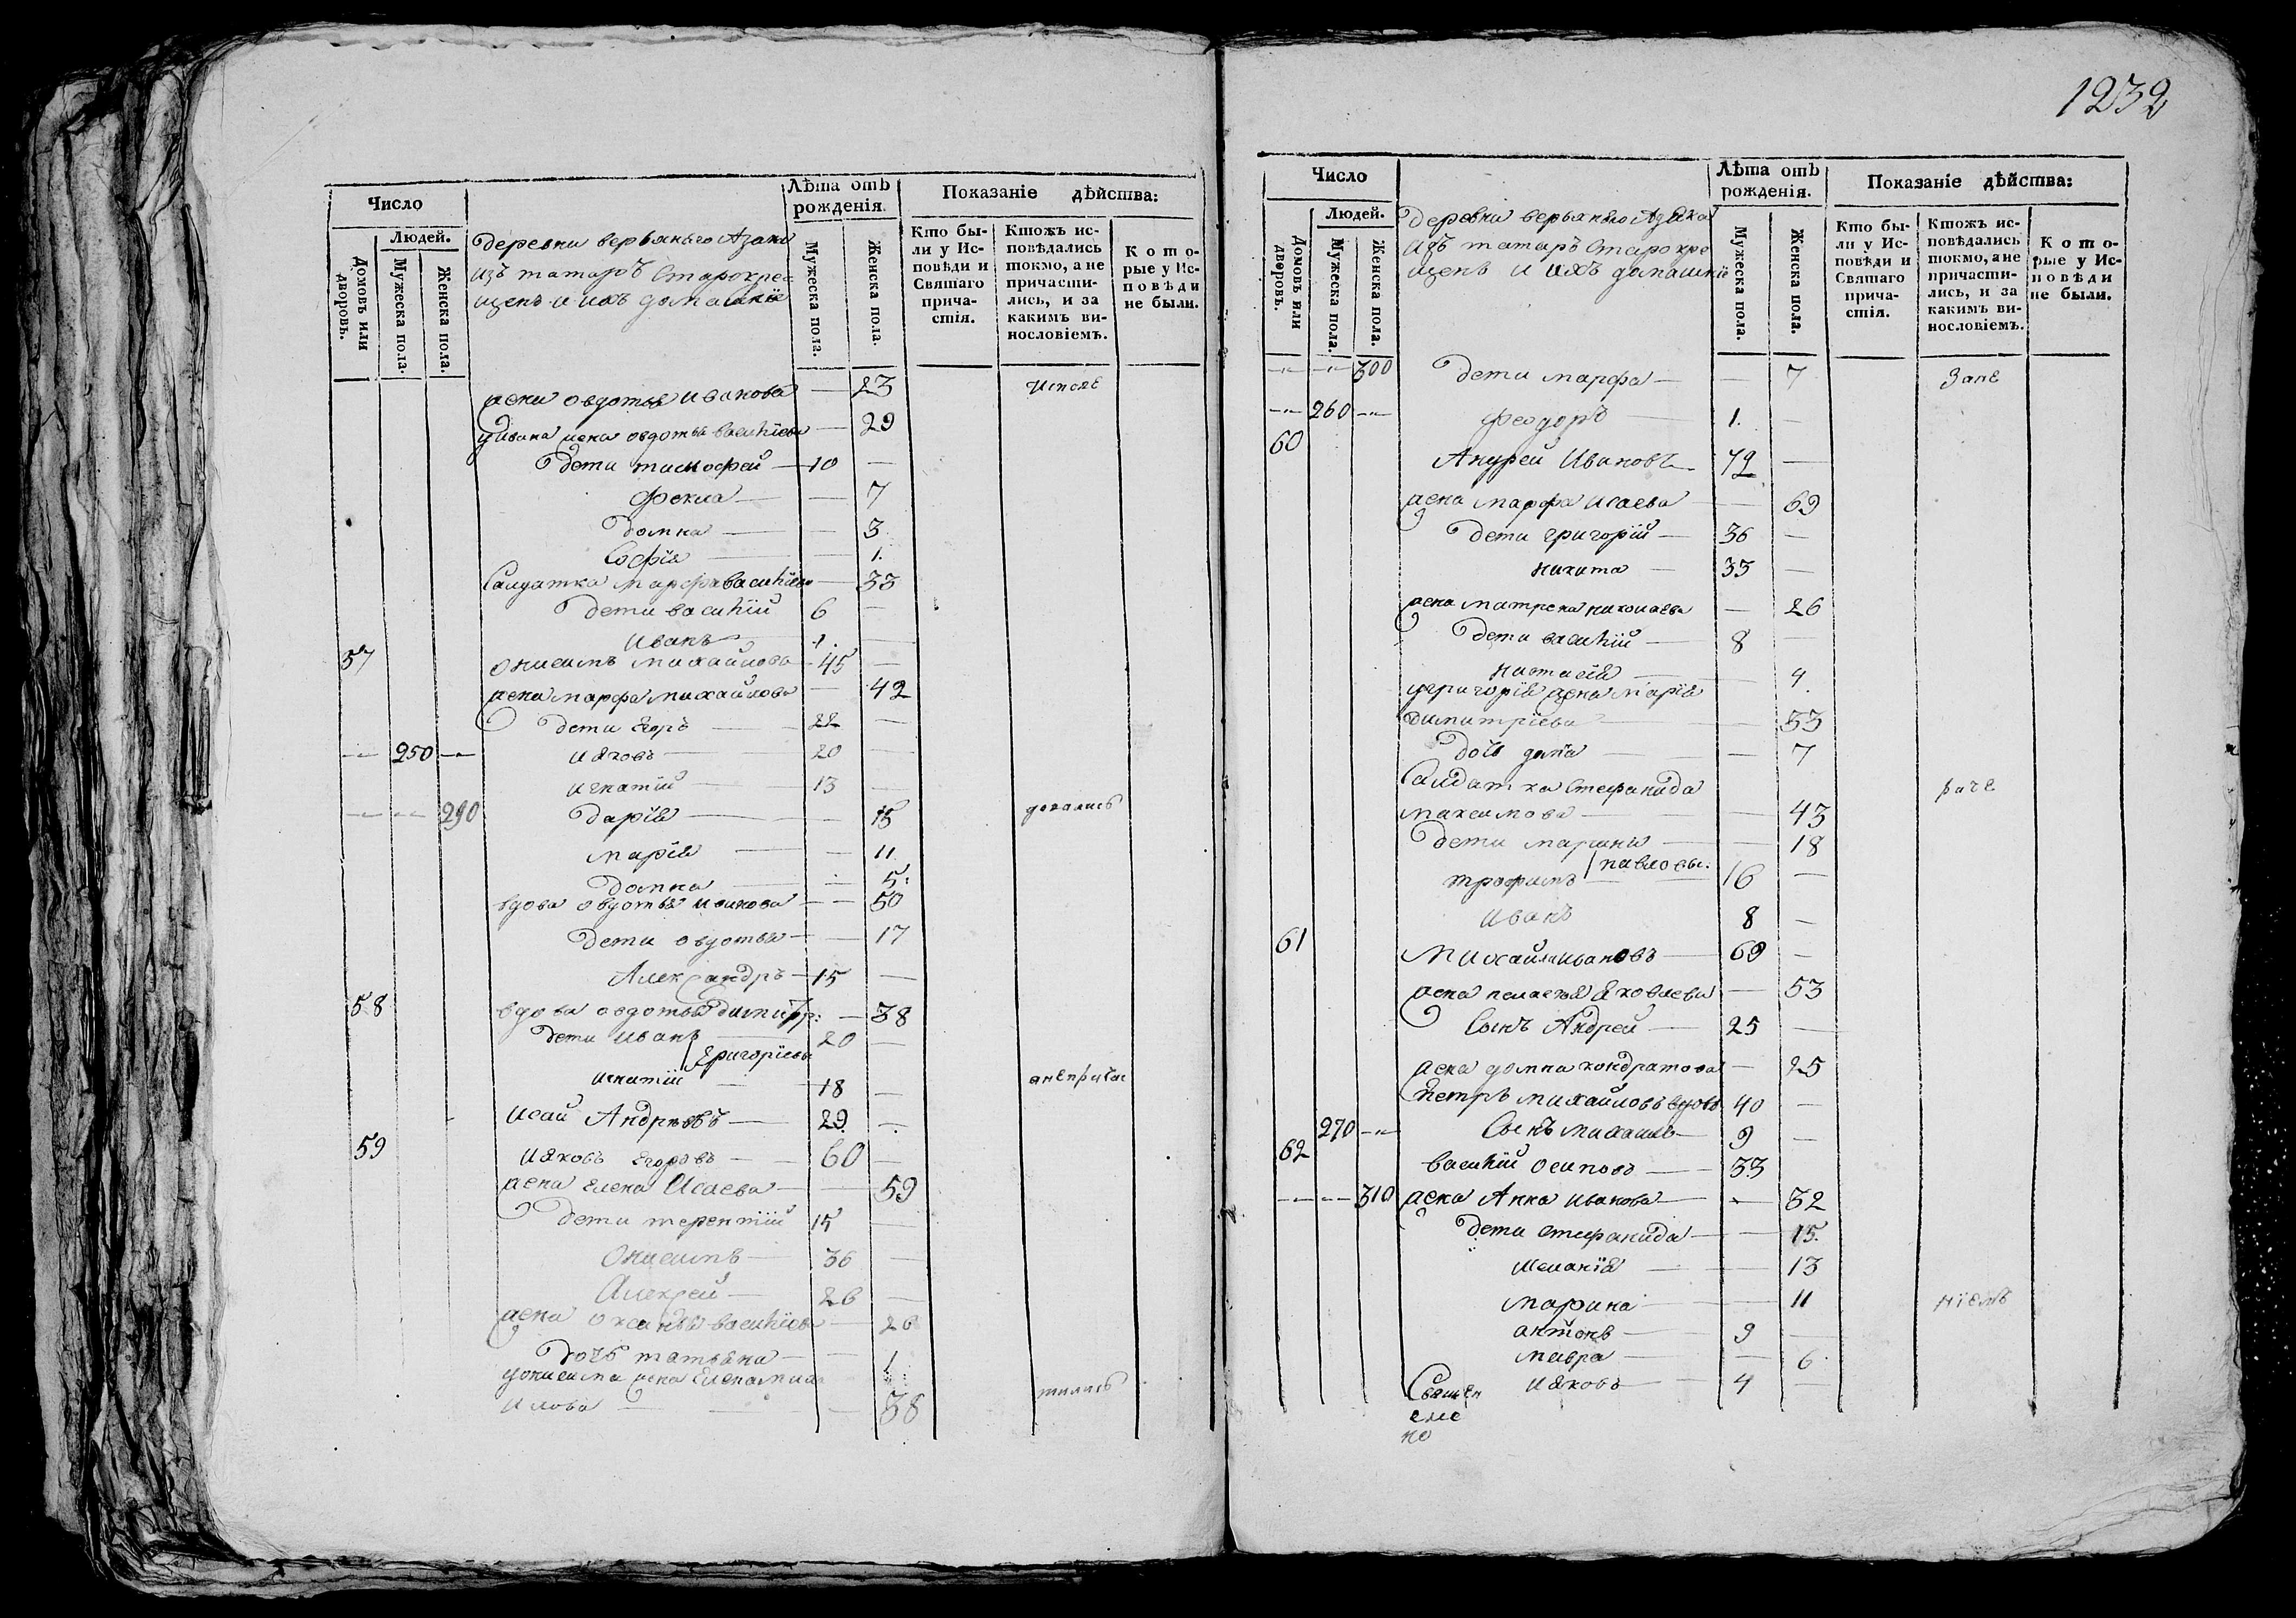 1232
Число
Людей.
Домовъ или дворовъ.
Мужеска пола.
Женска пола.
деревни верьхняго Азяка
изъ татаръ Старокре
щенъ и ихъ домашніе
Лѣта отъ рожденія.
Мужеска пола.
Женска пола.
Показаніе дѣйства:
Кто были у Исповѣди и Святаго причастія.
Ктожъ исповѣдались токмо, а не причастились, и за какимъ винословіемъ.
Которые у Исповѣди не были.
жена овдотья иванова — 23 испов
у ивана жена овдотья василіева — 29
дети тимофей — 10 —
фекла — — 7
домна — — 3
Софія — — 1.
Салдатка марфа василіева — 33
дети василій 6 —
иванъ 1. —
57 онисимъ михайловъ 45 —
жена марфа михайлова — 42
дети егоръ — 22 —
250 ияковъ — 20 —
игнатій — 13 —
290 дарія — — 15 довались
марія — — 11
домна — — 5
вдова овдотья иванова — — 50
дети овдотья — — 17
Александръ — 15 —
58 вдова овдотья димитр: — 38
дети иванъ 20 —
Григоріевы
игнатій — 18 — анепричас
исай Андреевъ — 29 —
59 ияковъ егоровъ — 60 —
жена елена Исаева — — 59
дети терентій 15 —
Онисимъ — 36 —
Алексей — 26 —
жена василіева — 26
дочь татьяна — — 1
у онисима жена елена миха
илова — — 38 тились
Число
Людей.
Домовъ или дворовъ.
Мужеска пола.
Женска пола.
деревни верьхняго Азяка
изъ татаръ Старокре
щенъ и ихъ домашніе
Лѣта отъ рожденія.
Мужеска пола.
Женска пола.
Показаніе дѣйства:
Кто были у Исповѣди и Святаго причастія.
Ктожъ исповѣдались токмо, а не причастились, и за какимъ винословіемъ.
Которые у Исповѣди не были.
300 дети марфа — — 7 зане
260 феодоръ — 1. —
60 Андрей Ивановъ — 72 —
жена марфа исаева — 69
дети григорій — 36 —
никита — 33 —
жена матрена николаева — 26
дети василій — 8 —
настасія — 4
у григорія жена марія
димитріева — — 33
дочь — — 7
Салдатка стефанида
максимова — — 43
дети марина — — 18
павловы:
трофимъ — 16 —
иванъ 8 —
61 Михайла ивановъ — 69 —
жена пелагея яковлева — 53
Сынъ Андрей — 25 —
жена домна кондратова — 25
Петръ михайловъ вдовъ 40 —
270 Сынъ михаилъ — 9 —
62 василій осиповъ — 33
310 жена Анна иванова — 32
дети стефанида — — 15.
меланія — — 13
марина — — 11 ніемъ
антонъ — 9 —
мавра — — 6
ияковъ — 4 —
Священ